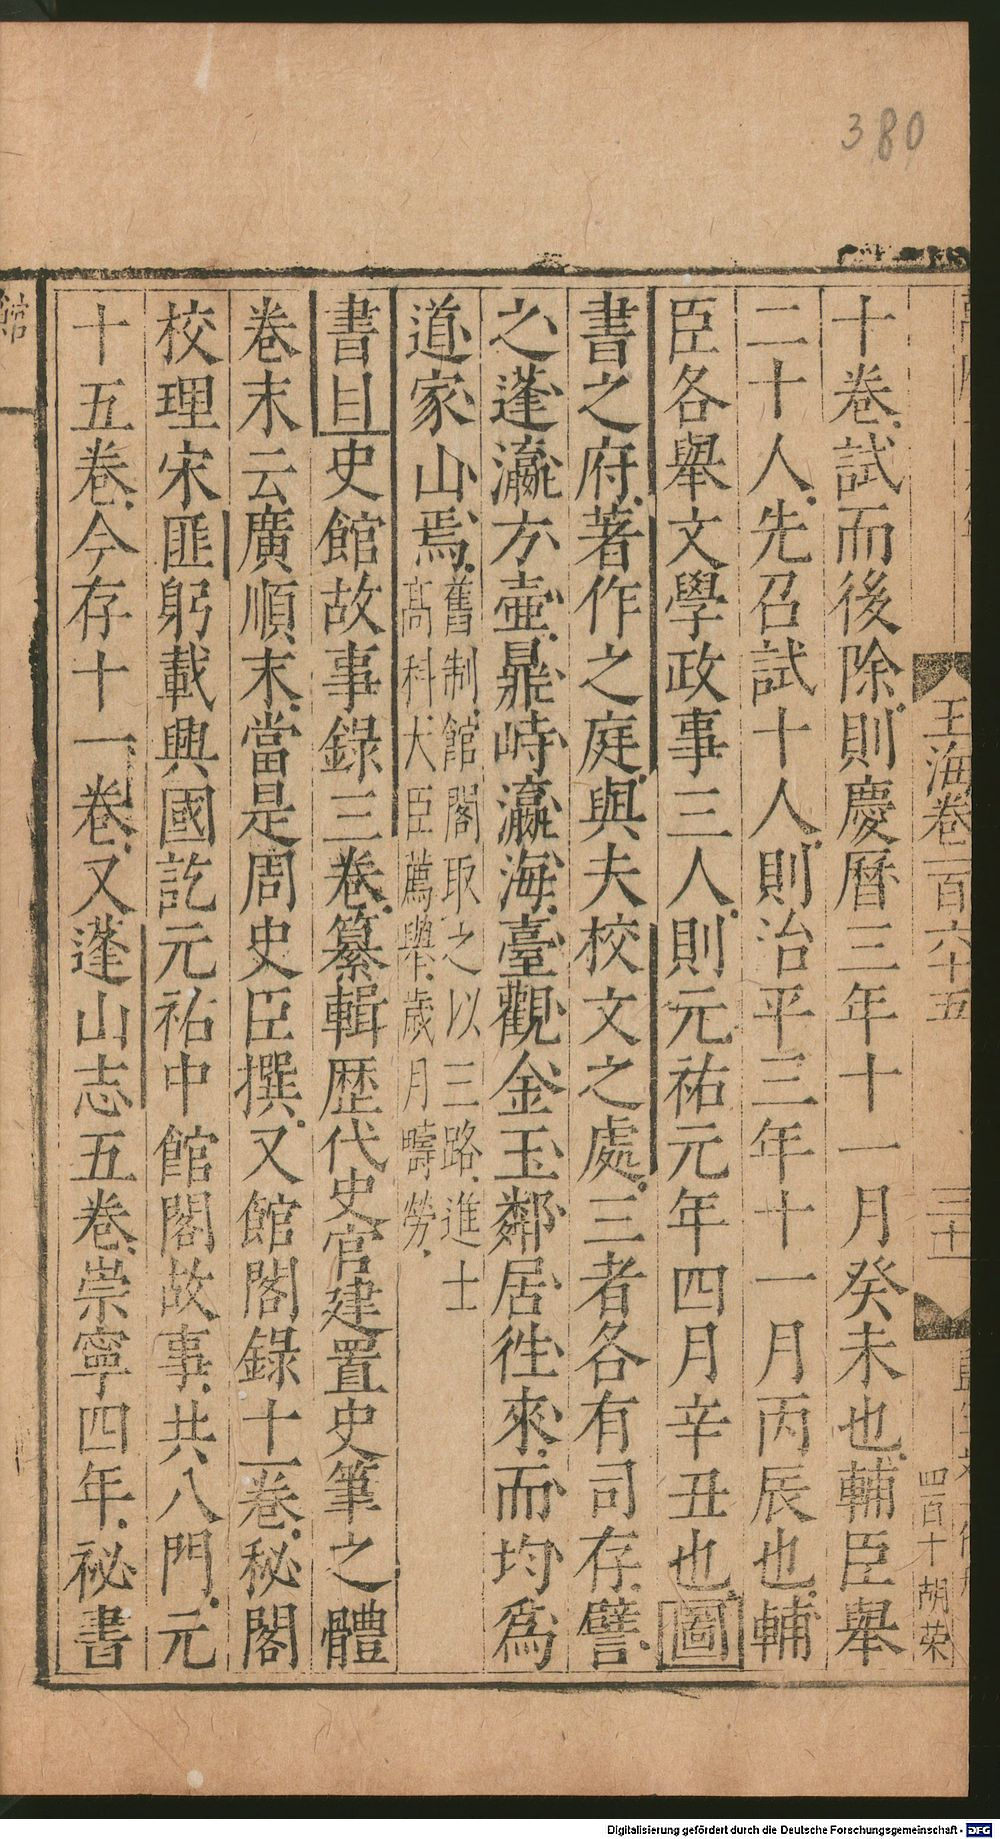 380
玉海卷一百六十五
三十一
四百十 胡荣
十卷試而後除則慶曆三年十一月癸未也輔臣舉
二十人先召試十人則治平三年十一月丙辰也輔
臣各舉文學政事三人則元祐元年四月辛丑也圖
書之府著作之庭與夫校文之處三者各有司存譬
之蓬瀛方壺鼎峙瀛海臺觀金玉鄰居徃來而均爲
道家山焉舊制館閣取之以三路進士
髙科大臣薦舉歲月疇勞
書目史館故事錄三卷纂輯歷代史官建置史筆之體
卷末云廣順末當是周史臣撰又館閣錄十一卷秘閣
校理宋匪躬載興國訖元祐中館閣故事共八門元
十五卷今存十一卷又蓬山志五卷崇寧四年祕書
館
Digitalisierung gefördert durch die Deutsche Forschungsgemeinschaft - DFG